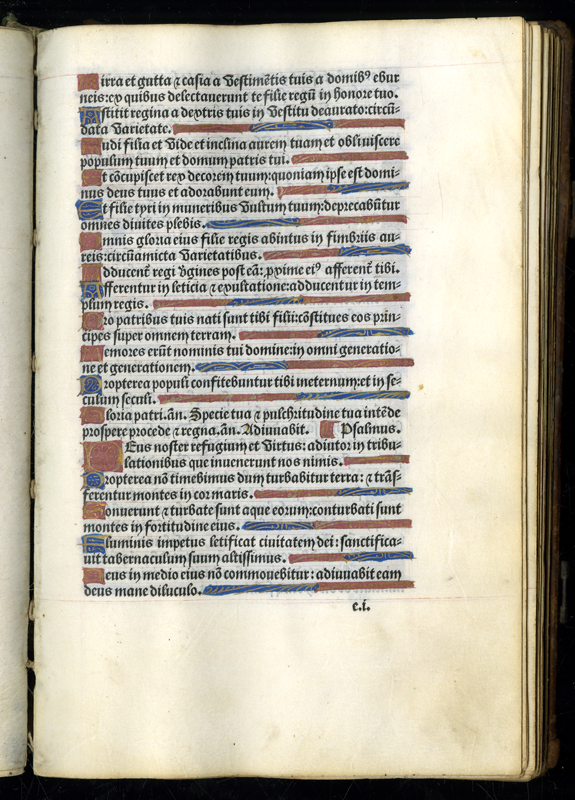 Mirra et gutta ⁊ casia a Vestimẽtis tuis a domibꝰ ebur
neis:ex quibus delectauerunt te filie regũ in honore tuo.
Astitit regina a dextris tuis in Vestitu deaurato:circũ-
data Varietate.
Audi filia et Vide et inclina aurem tuam et obliuiscere
populum tuum et domum patris tui.
Et cõcupiscet rex decorem tuum:quoniam ipse est domi-
nus deus tuus et adorabunt eum.
Et filie tyri in muneribus Vultum tuum:deprecabũtur
omnes diuites plebis.
Omnis gloria eius filie regis abintus in fimbriis au-
reis:circũamicta Varietatibus.
Adducent̃ regi Vgines post eã: ꝓxime eiꝰ afferent̃ tibi.
Afferentur in leticia ⁊ exultatione:adducentur in tem-
plum regis.
Pro patribus tuis nati sunt tibi filii:cõstitues eos prin-
cipes super omnem terram.
Memores erũt nominis tui domine:in omni generatio-
ne et generationem.
Propterea populi confitebuntur tibi ineternum:et in se-
culum seculi.
Gloria patri.ãn. Specie tua ⁊ pulchritudine tua intẽde
prospere procede ⁊ regna.ãn. Adiuuabit. Psalmus.
DEus noster refugium et Virtus: adiutor in tribu-
lationibus que inuenerunt nos nimis.
Propterea nõ timebimus dum turbabitur terra: ⁊ trãs-
ferentur montes in cor maris.
Sonuerunt ⁊ turbate sunt aque eorum:conturbati sunt
montes in fortitudine eius.
Fluminis impetus letificat ciuitatem dei: sanctifica-
uit tabernaculum suum altissimus.
Deus in medio eius nõ commouebitur: adiuuabit eam
deus mane diluculo.
c.i.